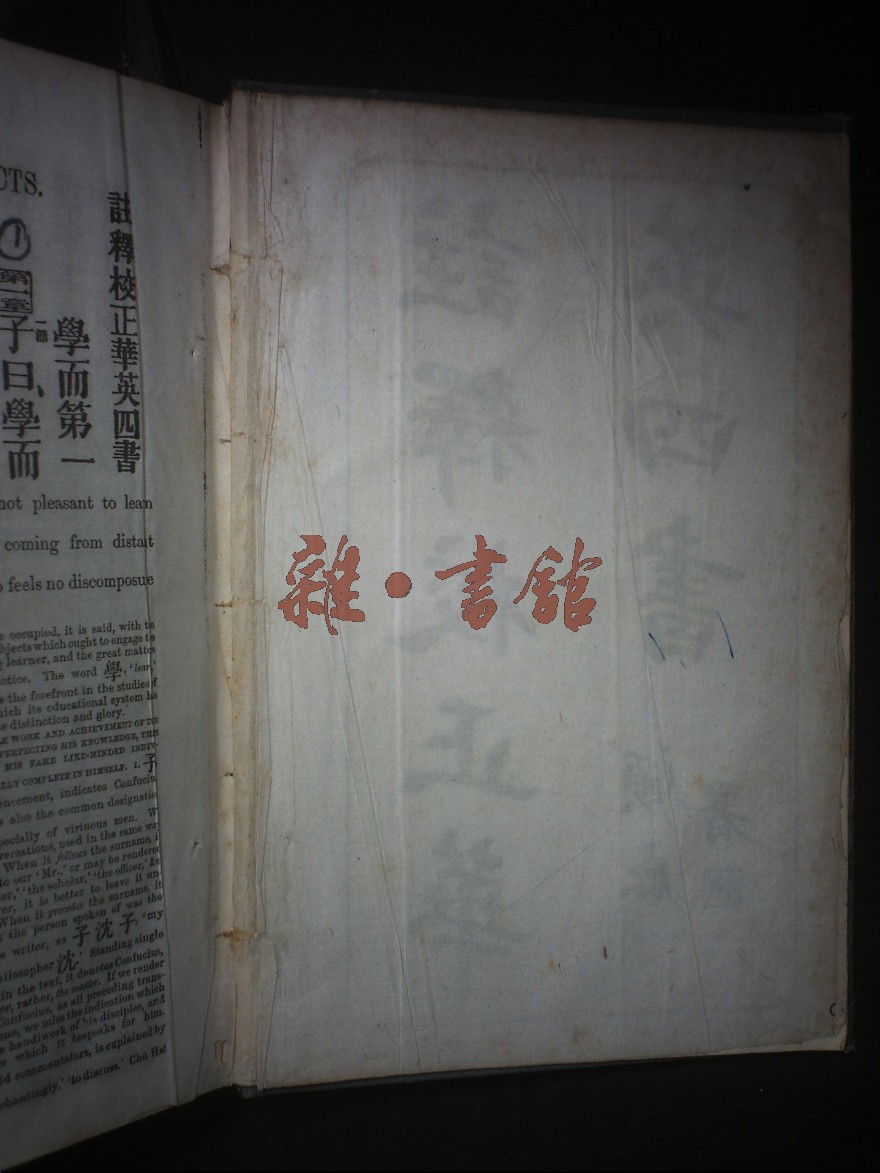 CTS.
註釋校正華英四書
學而第一
①
第一章
一節
子曰、學而
not pleasant to learn
coming from distant
o feels no discomposure
e occupied, it is said, with
bjects which ought to engage
learner, and the great matter
ctice. The word 學, 'lear,'
s the forefront in the studies of
hich its educational system has
e distinction and glory.
E WORK AND ACHIEVEMENT OF THE
PERFECTING HIS KNOWLEDGE, THIS
HIS FAME LIKE-MINDED INDIV-
LLY COMPLETE IN HIMSELF. 1. 子
ncement, indicates Confucius
s also the common designation
pecially of virtuous men. W
versations, used in the same way
When it follows the surname, i
to our 'Mr.,' or may be rendered
or,' 'the scholar,' 'the officer,' &c
ver, it is better to leave it un-
When it precedes the surname, it
the person spoken of was the
s writer, as 子沈子, 'my
hilosopher 沈.' Standing single
in the text, it denotes Confucius,
or, rather, the master. If we render
Confucius, as all preceding trans-
one, we miss the indication which
e handiwork of his disciples, and
e which it bespeaks for him.
ld commentators, is explained by
chantingly,' 'to discuss.' Chû Hsî
雜·書館
註釋校正華
英四書